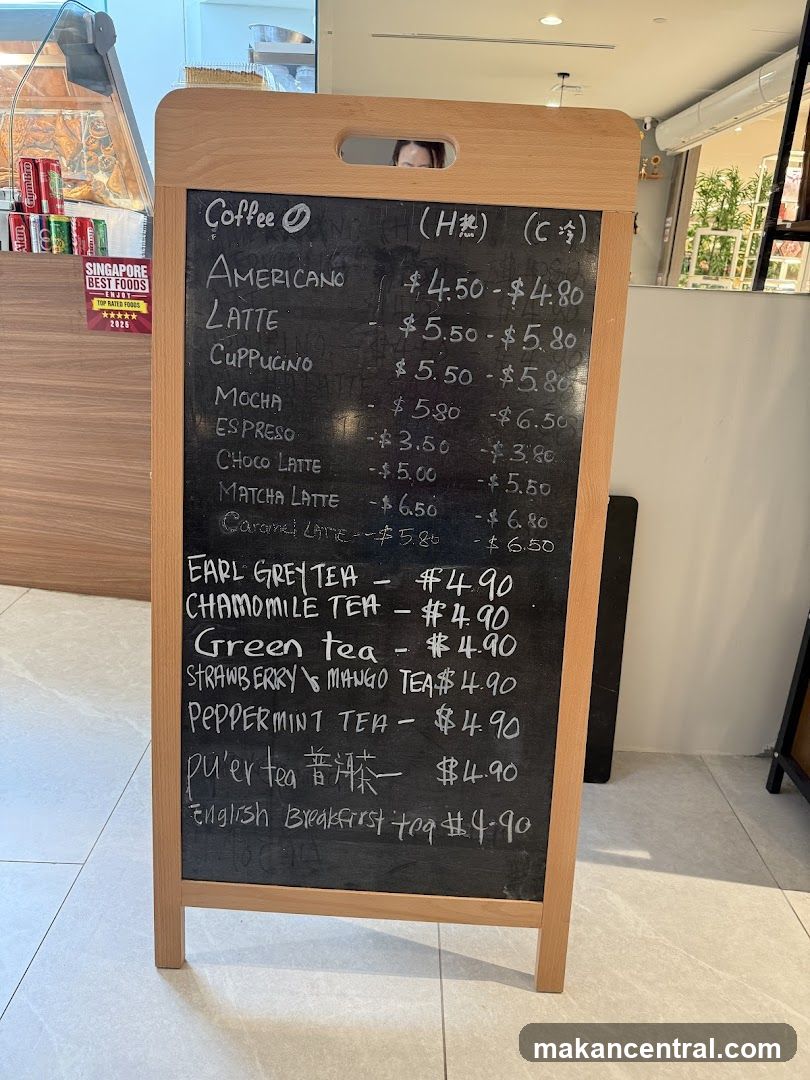 Coffee (H热) (C 冷)
AMERICANO $4.50 - $4.80
LATTE - $5.50 - $5.80
CUPPUCINO $5.50 - $5.80
MOCHA - $5.80 - $6.50
ESPRESO - $3.50 - $3.80
CHOCO LATTE - $5.00 - $5.50
MATCHA LATTE - $6.50 - $6.80
Caramel LATTE -- $5.80 - $6.50
EARL GREY TEA - $4.90
CHAMOMILE TEA - $4.90
Green tea - $4.90
STRAWBERRY \& MANGO TEA $4.90
PEPPERMINT TEA - $4.90
pu'er tea 普洱茶 - $4.90
English Breakfirst tea $4.90
SINGAPORE
BEST FOODS
ENJOY
TOP RATED FOODS
★★★★★
2025
makancentral.com